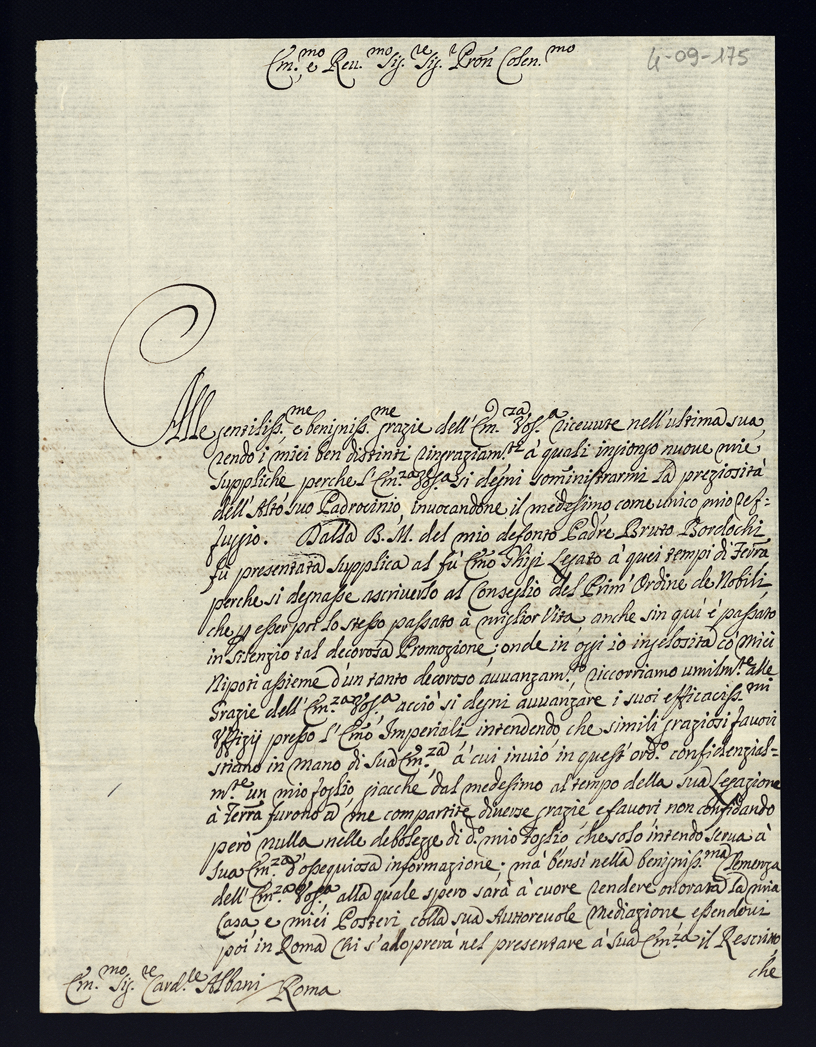 Em.mo e Reu.mo Sig.re Sig.re Pron Colen.mo
4-09-175
Alle gentiliss.me e benigniss.me grazie dell'Em.za Vos.a riceuute nell'ultima sua
rendo i miei ben distinti ringraziam.ti à quali ingiongo nuoue mie
suppliche perche l'Em.za Vos.a si degni somministrarmi la preziosità
dell'Alto suo Padrocinio, inuocandone il medesimo come unico mio ref=
fuggio. Dalla B. M. del mio defonto Padre Bruto Bordochi
fù presentata supplica al fù Emo Ghigi Legato à quei tempi di Ferra
perche si degnasse ascriuerlo al Conseglio del Prim' Ordine de Nobili,
che p esser poi lo stesso passato à miglior Vita anche sin qui è passato
in silenzio tal decorosa Promozione; onde in oggi io ingelosita co' miei
Nipoti assieme d'un tanto decoroso auuanzam.to riccorriamo umilm.te alle
Grazie dell'Em.za Vos.a, acciò si degni auuanzare i suoi efficaciss.mi
Uffizij presso l'Emo Imperiali, intendendo che simili graziosi fauori
stiano in mano di Sua Em.za à cui inuio in quest' ord.o confidenzial=
m.te un mio foglio giacche dal medesimo al tempo della sua Legazione
à Ferra furono à me compartite diuerse grazie e fauori non confidando
però nulla nelle debolezze di d.o mio foglio, che solo intendo serua à
Sua Em.za d'ossequiosa informazione; mà bensi nella benigniss.ma Clemenza
dell'Em.za Vos.a, alla quale spero sarà à cuore rendere onorata la mia
Casa e miei Posteri colla sua Autoreuole Mediazione essendoui
poi in Roma chi s'adoprerà nel presentare à Sua Em.za il Rescritto,
che
Em.mo Sig.re Card.le Albani Roma